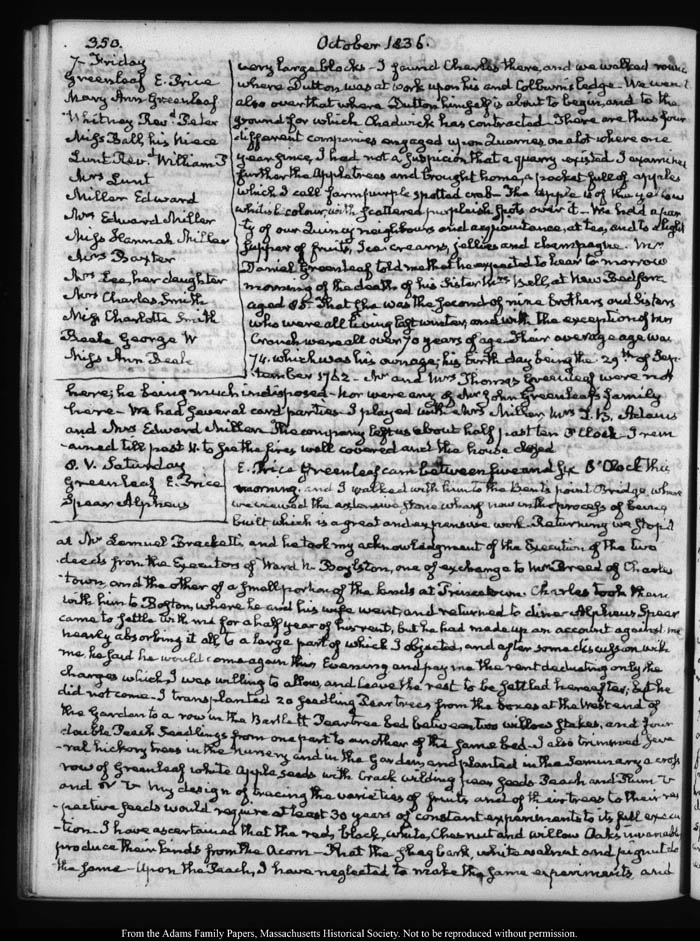 350.
October 1836.
7. Friday
Greenleaf E. Price
Mary Ann Greenleaf
Whitney Revd. Peter
Miss Ball, his Niece
Lunt Revd. William P
Mrs Lunt
Miller Edward
Mrs Edward Miller
Miss Hannah Miller
Mrs Baxter
Mrs Lee, her daughter
Mrs Charles Smith
Miss Charlotte Smith
Beale George W
Miss Ann Beale
very large blocks – I found Charles there, and we walked round
where Dutton was at work upon his and Colburn's ledge. We went
also over that where Dutton himself is about to begin, and to the
ground for which Chadwick has contracted. There are thus four
different companies engaged upon Quarries, on a lot where one
year since, I had not a suspicion that a quarry existed. I examined
further the Apple trees and brought home, a pocket full of apples
which I call farm purple spotted crab – The apple is of the yellow
whitish colour, with scattered purpleish spots over it – We held a par-
ty of our Quincy neighbours and acquaintance, at tea, and to a light
supper of fruits, Ice-creams, jellies and champagne. Mr
Daniel Greenleaf told me that he expected to hear to morrow
morning of the death of his Sister Mrs Bell, at New Bedford
aged 85. That she was the second of nine Brothers and Sisters
who were all living last winter, and with the exception of Mrs
Cranch were all over 70 years of age. Their average age was
74. which was his own age; his birth day being the 29th of Sep-
tember 1762 – Mr and Mrs Thomas Greenleaf were not
here; he being much indisposed – nor were any of Mr John Greenleaf's family
here – We had several card parties – I played with Mrs Miller Mrs T. B. Adams
and Mrs Edward Miller. The company left us about half past ten O'Clock – I rem-
ained till past 11. to see the fires well covered and the house closed
8. V. Saturday
Greenleaf E. Price
Spear Alpheus
E. Price Greenleaf came between five and six O'Clock this
morning, and I walked with him to the Bent's point Bridge, where
we viewed the extensive stone wharf now in the process of being
built, which is a great and expensive work. Returning we stop'd
at Mr Lemuel Brackett's and he took my acknowledgment of the Execution of the two
deeds from the Executors of Ward N. Boylston, one of exchange to Mr Breed of Charles-
town, and the other of a small portion of the lands at Princetown. Charles took them
with him to Boston, where he and his wife went, and returned to dine. Alpheus Spear
came to settle with me for a half year of his rent, but he had made up an account against me
nearly absorbing it all, to a large part of which I objected, and after some discussion with
me he said he would come again this Evening and pay me the rent deducting only the
charges which I was willing to allow, and leave the rest to be settled hereafter; but he
did not come. I transplanted 20 seedling Pear trees from the boxes at the West end of
the Garden to a row in the Bartlett Pear tree bed between two willow stakes, and four
double Peach Seedlings from one part to another of the same bed – I also trimmed seve-
ral hickory trees in the nursery and in the Garden, and planted in the Seminary a cross
row of Greenleaf white Apple seeds with Crack wilding pear seeds Peach and Plum
and My design of tracing the varieties of fruits and of their trees to their res-
pective seeds would require at least 30 years of constant experiments to its full execu-
tion. I have ascertained that the red, black, white, Chesnut and willow Oaks invariably
produce their kinds from the Acorn – That the shagbark, white walnut and pignut do
the same – Upon the Peach, I have neglected to make the same experiments, and
From the Adams Family Papers, Massachusetts Historical Society. Not to be reproduced without permission.